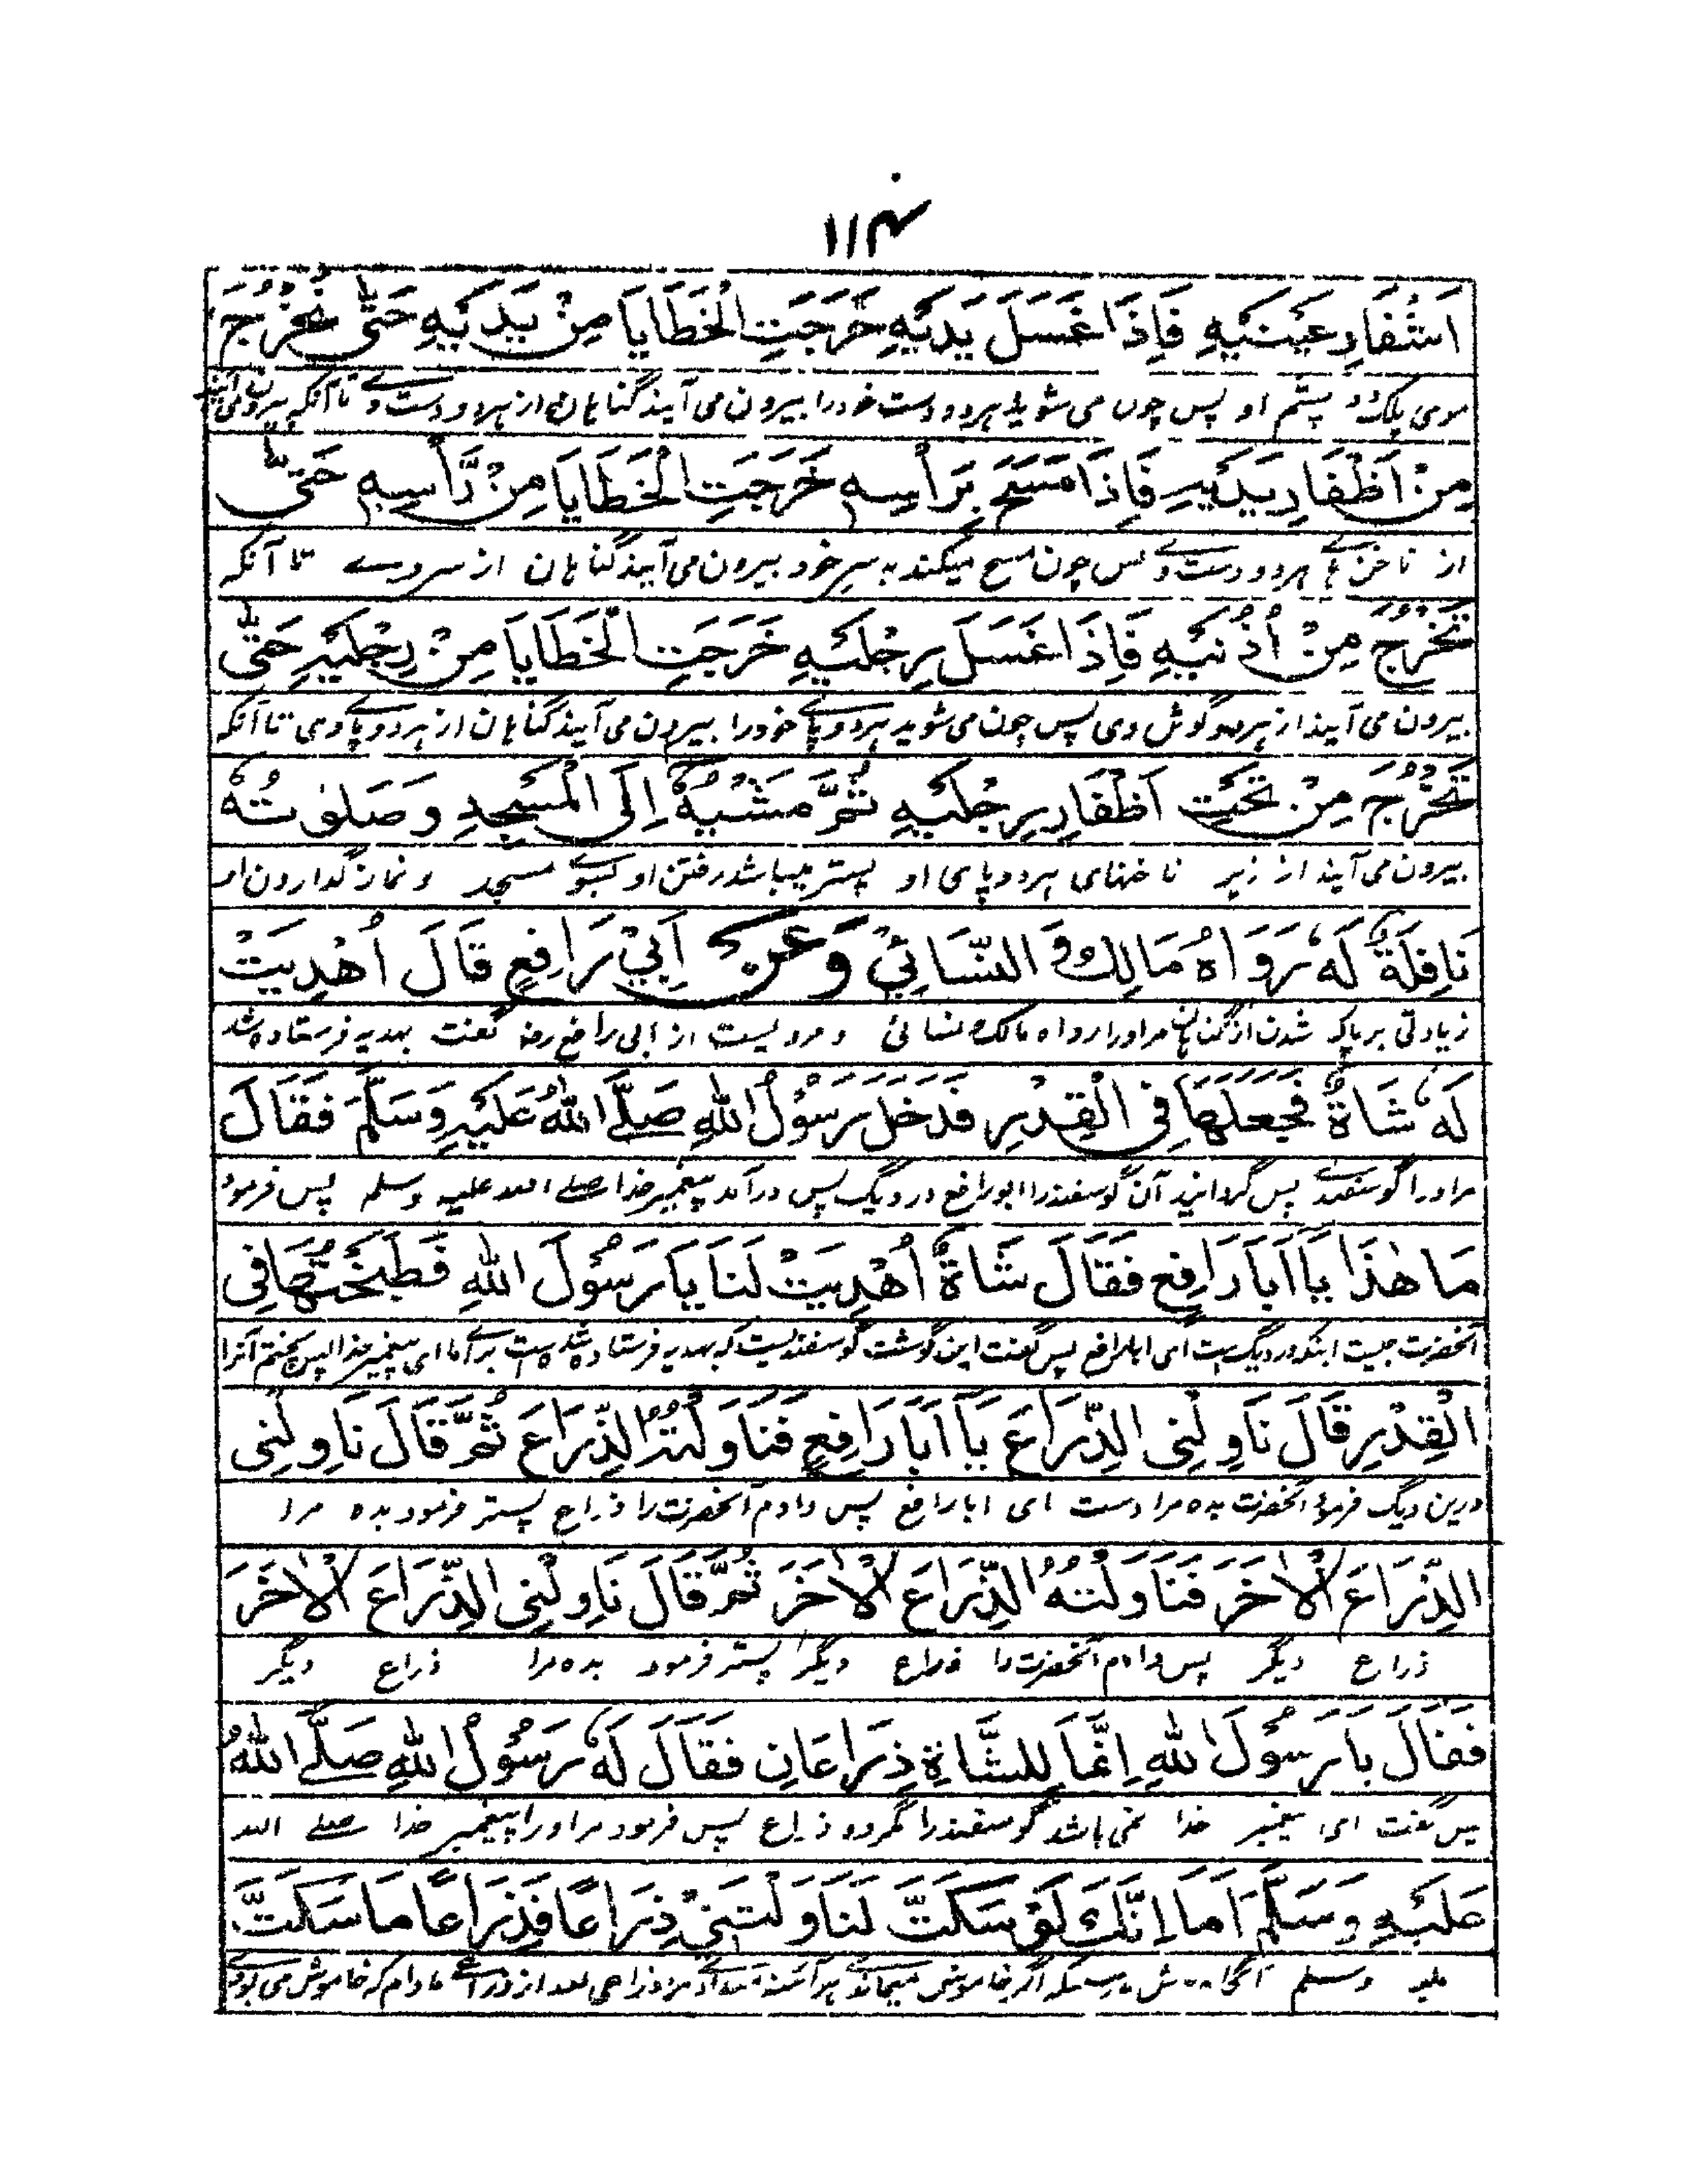 ۱۱۴
اَشْفَارِ عَيْنَيْهِ فَاِذَا غَسَلَ يَدَيْهِ خَرَجَتِ الْخَطَايَا مِنْ يَدَيْهِ حَتّٰى تَخْرُجَ
موی پلک دو چشم او پس چون می شوید هر دو دست خود را بیرون می آیند گناهان از هر دو دست وے تا آنکه بیرون می آیند
مِنْ اَظْفَارِ يَدَيْهِ فَاِذَا مَسَحَ بِرَأْسِهٖ خَرَجَتِ الْخَطَايَا مِنْ رَّأْسِهٖ حَتّٰى
از ناخن ہاے ہر دو دست وے پس چون مسح میکند به سر خود بیرون می آیند گناہان از سر وے تا آنکه
تَخْرُجَ مِنْ اُذُنَيْهِ فَاِذَا غَسَلَ رِجْلَيْهِ خَرَجَتِ الْخَطَايَا مِنْ رِجْلَيْهِ حَتّٰى
بیرون می آیند از ہر دو گوش وی پس چون می شوید ہر دو پاے خود را بیرون می آیند گناہان از ہر دو پاے وی تا آنکه
تَخْرُجَ مِنْ تَحْتِ اَظْفَارِ رِجْلَيْهِ ثُمَّ مَشْيُهٗ اِلَى الْمَسْجِدِ وَصَلٰوتُهٗ
بیرون می آیند از زیر ناخنهای ہر دو پای او پستر میباشد رفتن او بسوے مسجد و نماز گذاردن او
نَافِلَةً لَهٗ رَوَاهُ مَالِكٌ وَّ النَّسَائِيُّ وَعَنْ اَبِيْ رَافِعٍ قَالَ اُهْدِيَتْ
زیادتی بر پاک شدن از گناہان مر او را رواه مالک نسائی و مرویست از ابی رافع رضہ گفت بهدیه فرستاده شد
لَهٗ شَاةٌ فَجَعَلَهَا فِى الْقِدْرِ فَدَخَلَ رَسُوْلُ اللهِ صَلَّى اللهُ عَلَيْهِ وَسَلَّمَ فَقَالَ
مر او را گوسفندے پس گردانید آن گوسفند را ابو رافع در دیگ پس درآمد پیغمبر خدا صلے الله علیه وسلم پس فرمود
مَا هٰذَا يَا اَبَا رَافِعٍ فَقَالَ شَاةٌ اُهْدِيَتْ لَنَا يَا رَسُوْلَ اللهِ فَطَبَخْتُهَا فِى
آنحضرت چیست اینکه در دیگ ست ای ابا رافع پس گفت این گوشت گوسفندیست که بهدیه فرستاده شده ست براے ما ای پیغمبر خدا پس پختم آنرا
الْقِدْرِ قَالَ نَاوِلْنِى الذِّرَاعَ يَا اَبَا رَافِعٍ فَنَاوَلْتُهُ الذِّرَاعَ ثُمَّ قَالَ نَاوِلْنِى
درین دیگ فرمود آنحضرت بده مرا دست ای ابا رافع پس دادم آنحضرت را ذراع پستر فرمود بده مرا
الذِّرَاعَ الْاٰخَرَ فَنَاوَلْتُهُ الذِّرَاعَ الْاٰخَرَ ثُمَّ قَالَ نَاوِلْنِى الذِّرَاعَ الْاٰخَرَ
ذراع دیگر پس دادم آنحضرت را ذراع دیگر پستر فرمود بده مرا ذراع دیگر
فَقَالَ يَا رَسُوْلَ اللهِ اِنَّمَا لِلشَّاةِ ذِرَاعَانِ فَقَالَ لَهٗ رَسُوْلُ اللهِ صَلَّى اللهُ
پس گفت ای پیغمبر خدا نمی باشد گوسفند را مگر دو ذراع پس فرمود مر او را پیغمبر خدا صلے الله
عَلَيْهِ وَسَلَّمَ اَمَا اِنَّكَ لَوْ سَكَتَّ لَنَاوَلْتَنِيْ ذِرَاعًا فَذِرَاعًا مَا سَكَتَّ
علیه وسلم اگر خاموش ذراعی بعد از ذراعے مادام که خاموش می بودے